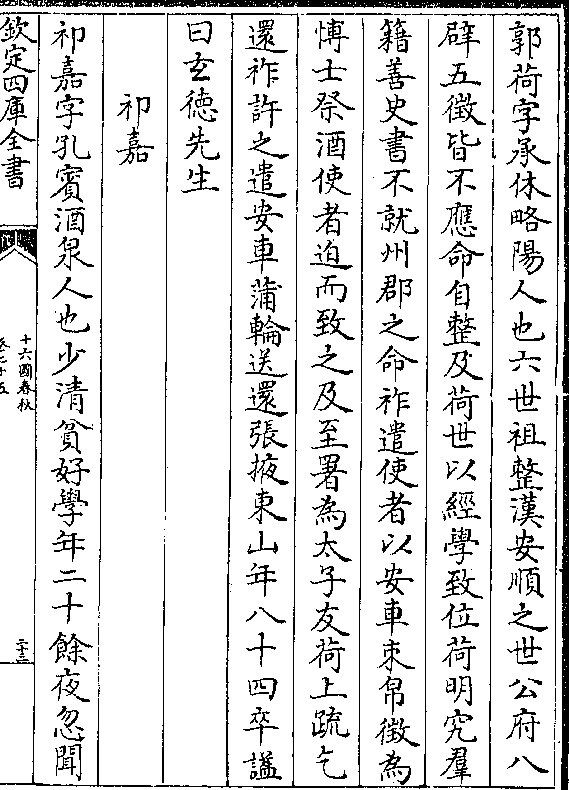 郭荷字承休略陽人也六世祖整漢安順之世公府八
辟五徵皆不應命自整及荷世以經學致位荷明究羣
籍善史書不就州郡之命祚遣使者以安車束帛徵為
博士祭酒使者迫而致之及至署為太子友荷上疏乞
還祚許之遣安車蒲輪送還張掖東山年八十四卒諡
曰玄德先生
祁嘉
祁嘉字孔賓酒泉人也少清貧好學年二十餘夜忽聞
欽定四庫全書
十六國春秋
卷七十五
二十三